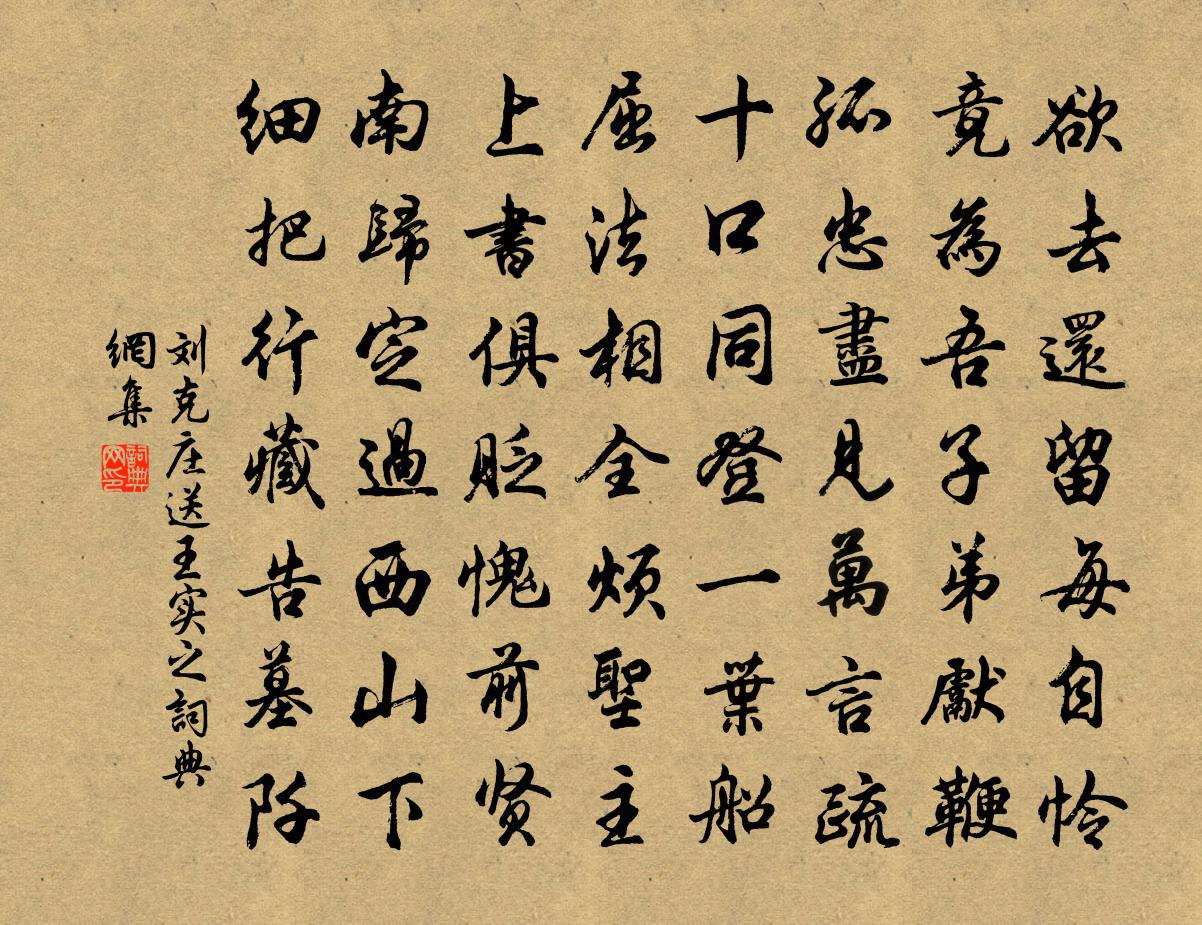 欲去還留每自怜
竟為吾子弟獻鞭
孤忠盡見萬言疏
十口同登一葉船
屈法相全煩聖主
上書俱貶愧前贤
南歸定過西山下
細把行藏告墓阡
刘克庄送王实之詞典
網集
詞典
网印